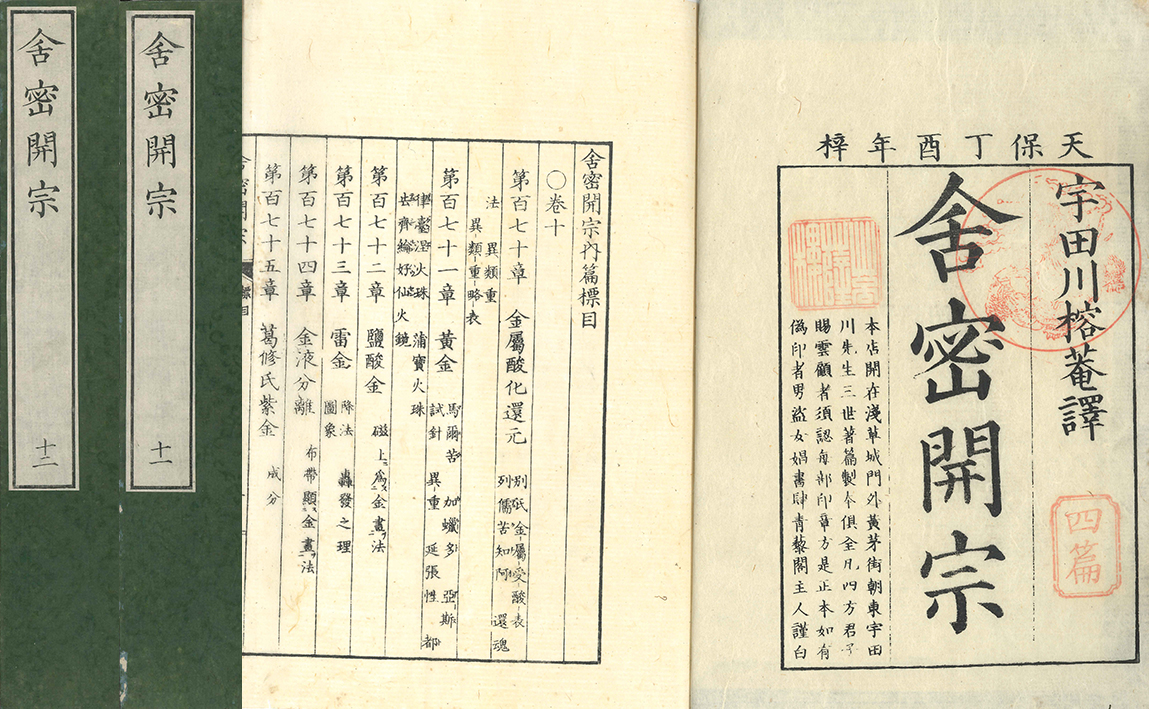 天保丁酉年梓
宇田川榕菴譯
舍密開宗
四篇
本店開在淺草城門外黃茅街朝東宇田
川先生三世著篇製本俱全凡四方君子
賜雲顧者須認每部印章方是正本如有
僞印者男盜女娼書肆青藜閣主人謹白
舍密開宗內篇標目
〇卷十
第百七十章 金屬酸化還元 別 金屬受酸表
列儒苦知阿 還魂
法 異類重
異類重略表
第百七十一章 黃金 馬爾苦 加蠟多 亞斯
試針 異重 延張性 都
律臺涅火珠 蒲寶火珠
齊綸好仙火鏡
第百七十二章 鹽酸金 磁上爲金畫法
第百七十三章 雷金 降法 轟發之理
圖象
第百七十四章 金液分離 布帶顯金畫法
第百七十五章 葛修氏紫金 成分
舍密開宗 十一
舍密開宗 十二